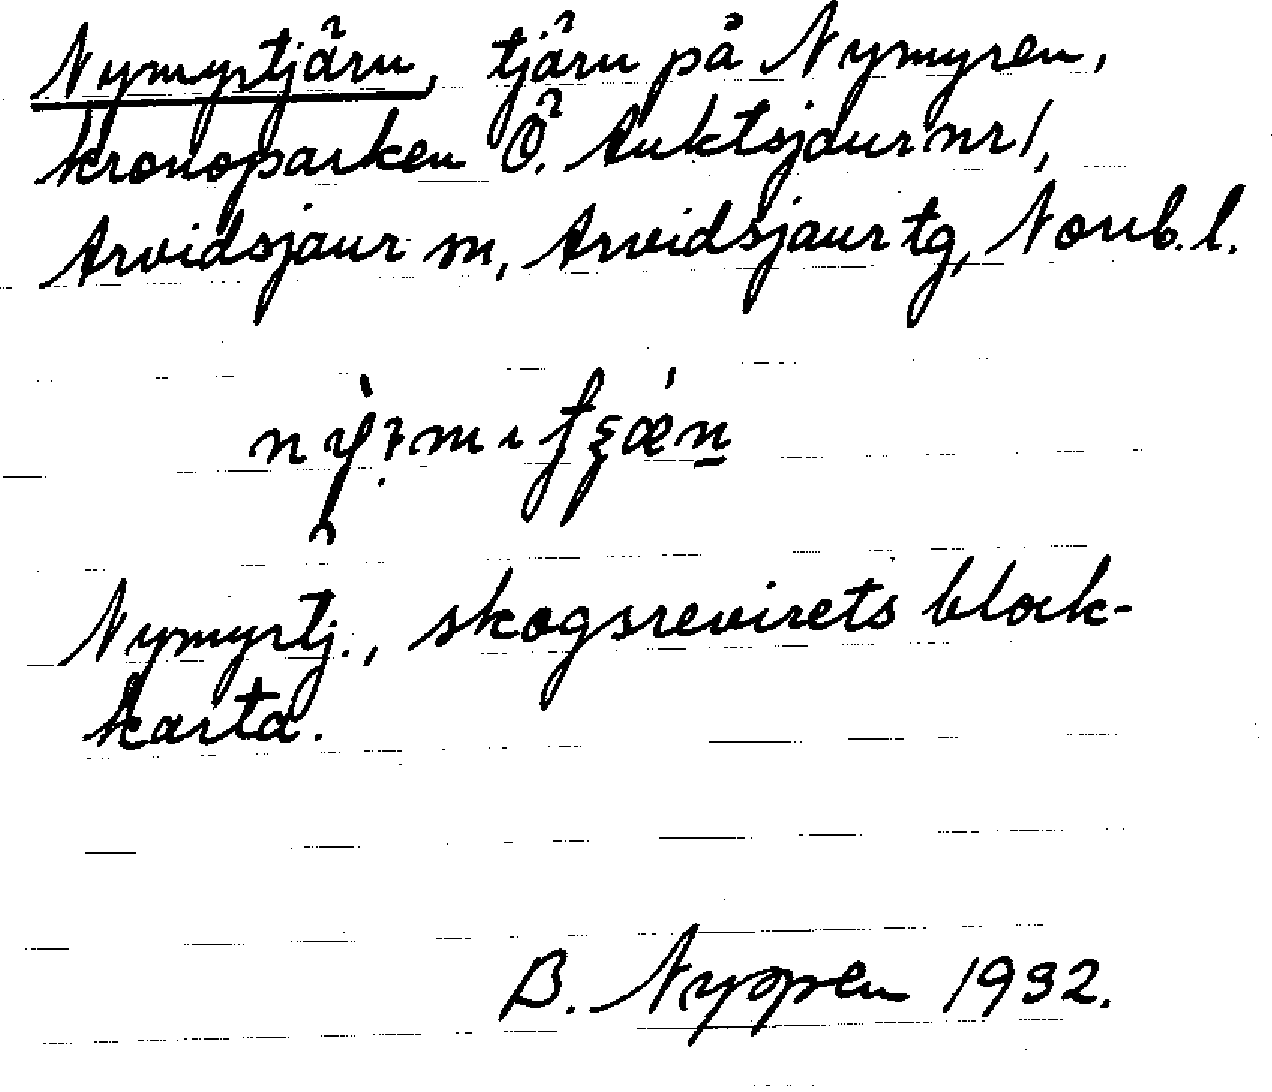 Nymyrtjärn, tjärn på Nymyren,
kronoparken Ö. Auktsjaur nr 1,
Arvidsjaur sn, Arvidsjaur tg, Norrb. l.
Nymyrtj., skogsrevirets block-
karta.
B. 1932.